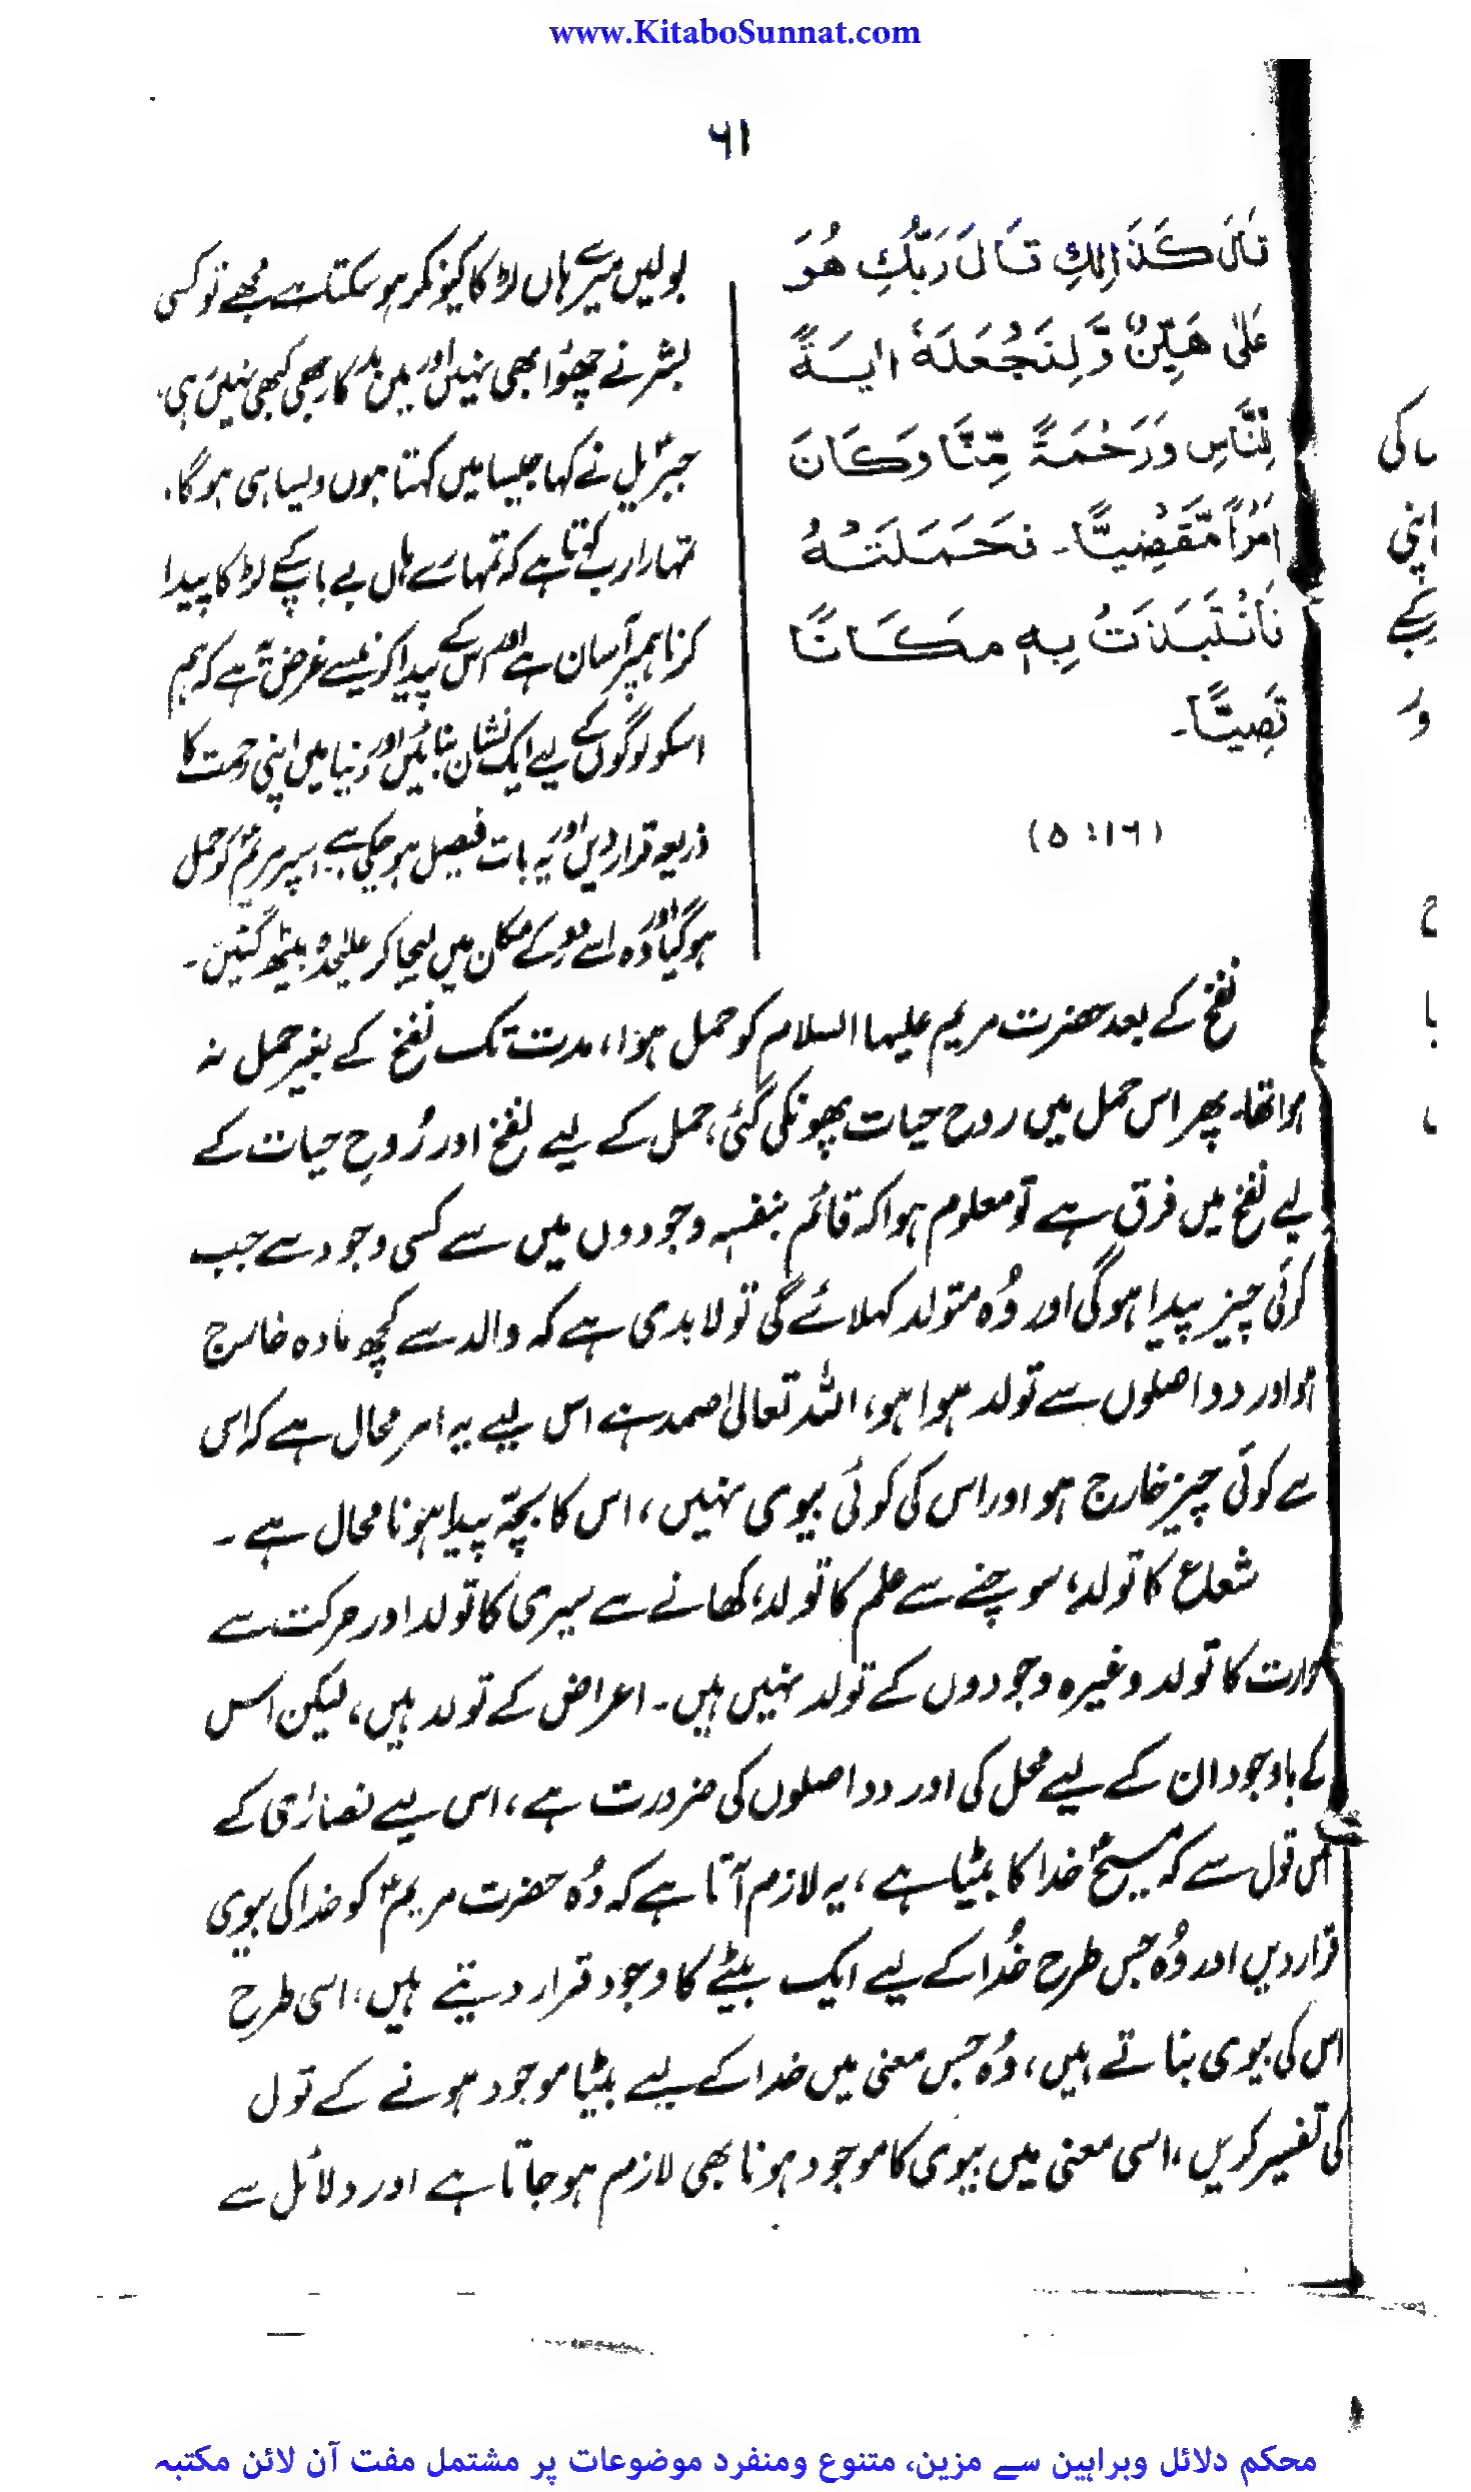 www.KitaboSunnat.com
۶۱
قَالَ كَذَالِكِ قَالَ رَبُّكِ هُوَ
عَلَىَّ هَيِّنٌ وَّلِنَجْعَلَهٗ اٰيَةً
لِّلنَّاسِ وَرَحْمَةً مِّنَّا وَكَانَ
اَمْرًا مَّقْضِيًّا۔ فَحَمَلَتْهُ
فَانْتَبَذَتْ بِهٖ مَكَانًا
قَصِيًّا۔
(۱۶ : ۵)
بولیں میرے ہاں لڑکا کیونکر ہو سکتا ہے مجھے تو کسی
بشر نے چھوا بھی نہیں اور میں بدکار بھی کبھی نہیں رہی،
جبریلؑ نے کہا جیسا میں کہتا ہوں ویسا ہی ہوگا،
تمہارا رب کہتا ہے کہ تمہارے ہاں بے باپ کے لڑکا پیدا
کرنا ہم پر آسان ہے اور اس کے پیدا کرنے سے غرض یہ ہے کہ ہم
اسکو لوگوں کے لیے ایک نشان بنائیں اور دنیا میں اپنی رحمت کا
ذریعہ قرار دیں اور یہ بات فیصل ہو چکی ہے، اسپر مریمؑ کو حمل
ہو گیا اور وہ اسے دور کے مکان میں لیجا کر علیحدہ بیٹھ گئیں۔
نفخ کے بعد حضرت مریم علیہا السلام کو حمل ہوا، مدت تک نفخ کے بغیر حمل نہ
ہوا تھا۔ پھر اس حمل میں روح حیات پھونکی گئی، حمل کے لیے نفخ اور رُوحِ حیات کے
لیے نفخ میں فرق ہے تو معلوم ہوا کہ قائم بنفسہ وجودوں میں سے کسی وجود سے جب
کوئی چیز پیدا ہوگی اور وُہ متولد کہلائے گی تو لابدی ہے کہ والد سے کچھ مادہ خارج
ہو اور دو اصلوں سے تولد ہوا ہو، اللہ تعالیٰ صمد ہے اس لیے یہ امر محال ہے کہ اس
سے کوئی چیز خارج ہو اور اس کی کوئی بیوی نہیں، اس کا بچّہ پیدا ہونا محال ہے۔
شعاع کا تولد، سوچنے سے علم کا تولد، کھانے سے سیری کا تولد اور حرکت سے
حرارت کا تولد وغیرہ وجودوں کے تولد نہیں ہیں۔ اعراض کے تولد ہیں، لیکن اس
کے باوجود ان کے لیے محل کی اور دو اصلوں کی ضرورت ہے، اس لیے نصارٰی کے
اس قول سے کہ مسیحؑ خدا کا بیٹا ہے، یہ لازم آتا ہے کہ وُہ حضرت مریمؑ کو خدا کی بیوی
قرار دیں اور وُہ جس طرح خُدا کے لیے ایک بیٹے کا وجود قرار دیتے ہیں، اسی طرح
اس کی بیوی بناتے ہیں، وُہ جس معنی میں خدا کے لیے بیٹا موجود ہونے کے قول
کی تفسیر کریں، اسی معنی میں بیوی کا موجود ہونا بھی لازم ہو جاتا ہے اور دلائل سے
محکم دلائل وبراہین سے مزین، متنوع ومنفرد موضوعات پر مشتمل مفت آن لائن مکتبہ